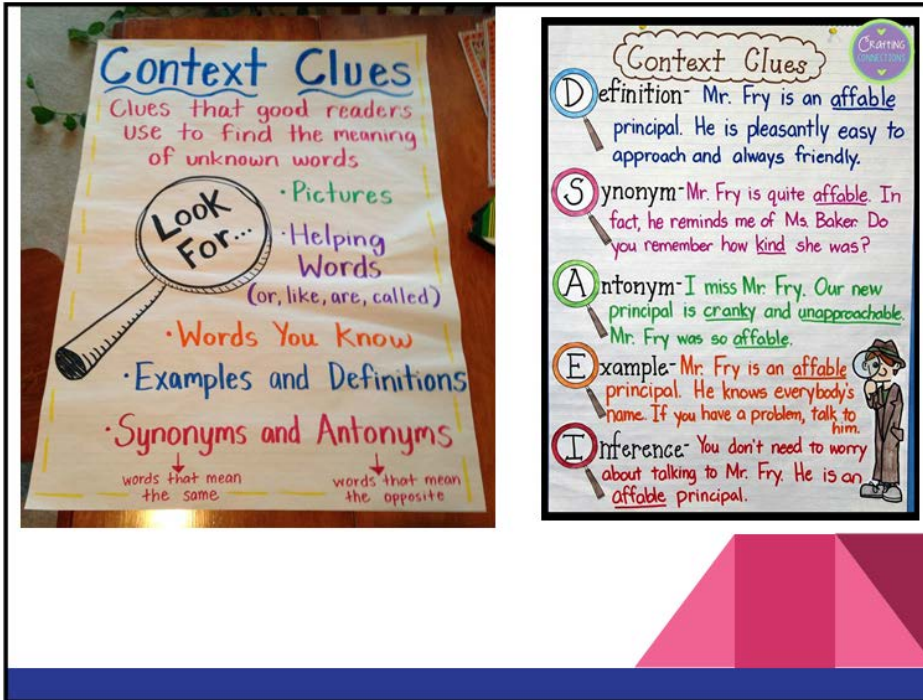 Context Clues
Clues that good readers
use to find the meaning
of unknown words
Look
For...
·Pictures
·Helping
Words
(or, like, are, called)
·Words You Know
·Examples and Definitions
·Synonyms and Antonyms
words that mean
the same
words that mean
the opposite
Crafting
Connections
Context Clues
Definition- Mr. Fry is an affable
principal. He is pleasantly easy to
approach and always friendly.
Synonym-Mr. Fry is quite affable. In
fact, he reminds me of Ms. Baker. Do
you remember how kind she was?
Antonym-I miss Mr. Fry. Our new
principal is cranky and unapproachable.
Mr. Fry was so affable.
Example-Mr. Fry is an affable
principal. He knows everybody's
name. If you have a problem, talk to
him.
Inference-You don't need to worry
about talking to Mr. Fry. He is an
affable principal.